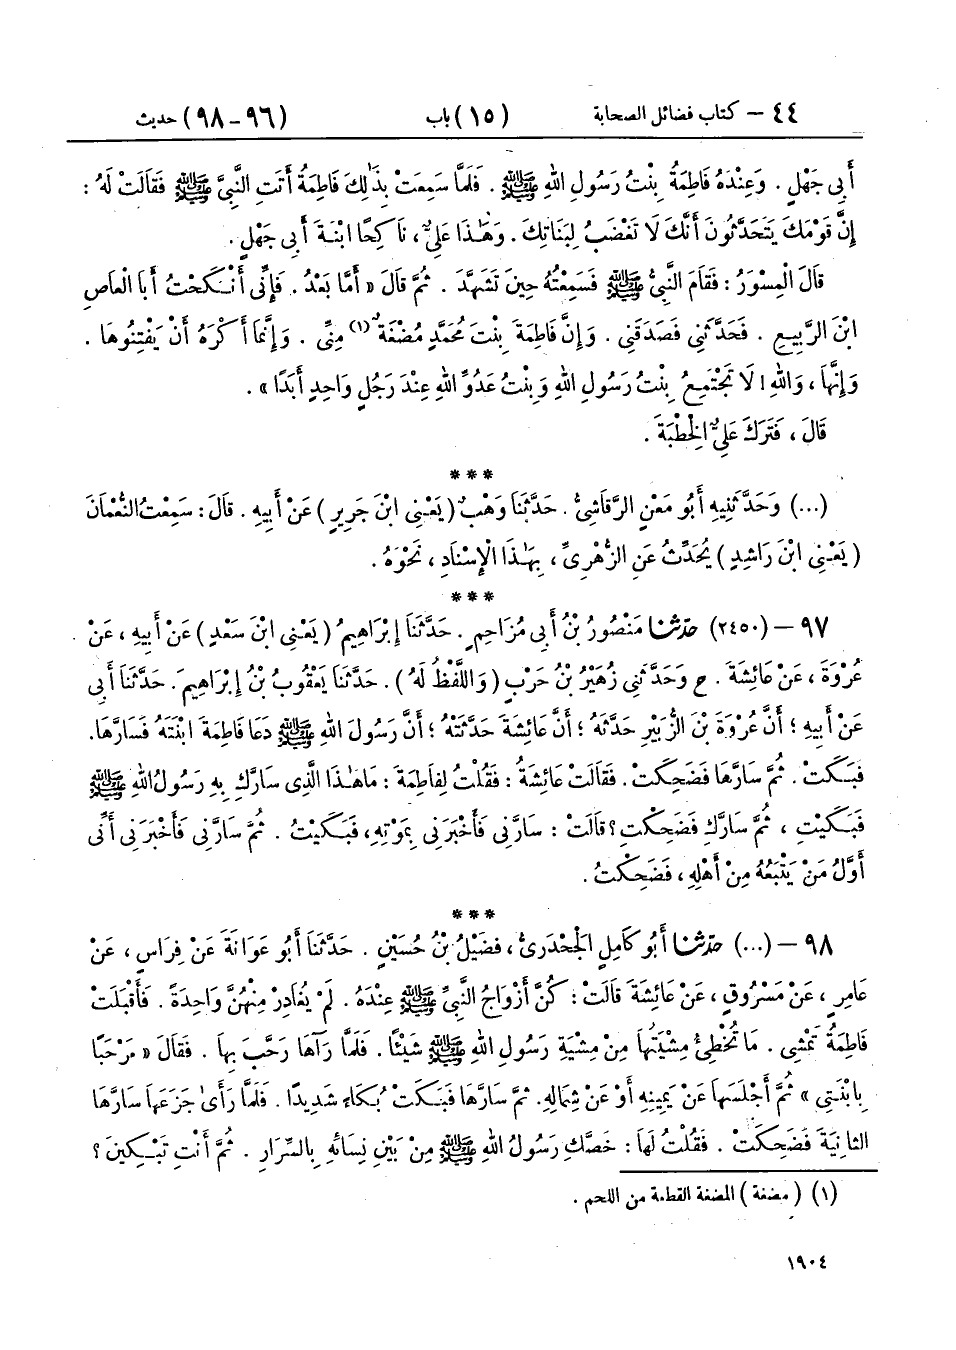 ٤٤ – كتاب فضائل الصحابة (١٥) باب (٩٦-٩٨) حديث
أَبِي جَهْلٍ . وَعِنْدَهُ فَاطِمَةُ بِنْتُ رَسُولِ اللهِ ﷺ . فَلَمَّا سَمِعَتْ بِذَٰلِكَ فَاطِمَةُ أَتَتِ النَّبِيَّ ﷺ فَقَالَتْ لَهُ :
إِنَّ قَوْمَكَ يَتَحَدَّثُونَ أَنَّكَ لَا تَغْضَبُ لِبَنَاتِكَ . وَهَٰذَا عَلِيٌّ ، نَاكِحًا ابْنَةَ أَبِي جَهْلٍ .
قَالَ الْمِسْوَرُ : فَقَامَ النَّبِيُّ ﷺ فَسَمِعْتُهُ حِينَ تَشَهَّدَ . ثُمَّ قَالَ « أَمَّا بَعْدُ . فَإِنِّي أَنْكَحْتُ أَبَا الْعَاصِ
ابْنَ الرَّبِيعِ . فَحَدَّثَنِي فَصَدَقَنِي . وَإِنَّ فَاطِمَةَ بِنْتَ مُحَمَّدٍ مُضْغَةٌ (١) مِنِّي . وَإِنَّمَا أَكْرَهُ أَنْ يَفْتِنُوهَا .
وَإِنَّهَا ، وَاللهِ ! لَا تَجْتَمِعُ بِنْتُ رَسُولِ اللهِ وَبِنْتُ عَدُوِّ اللهِ عِنْدَ رَجُلٍ وَاحِدٍ أَبَدًا » .
قَالَ ، فَتَرَكَ عَلِيٌّ الْخِطْبَةَ .
***
(...) وَحَدَّثَنِيهِ أَبُو مَعْنٍ الرَّقَاشِيُّ . حَدَّثَنَا وَهْبٌ (يَعْنِي ابْنَ جَرِيرٍ ) عَنْ أَبِيهِ . قَالَ : سَمِعْتُ النُّعْمَانَ
( يَعْنِي ابْنَ رَاشِدٍ ) يُحَدِّثُ عَنِ الزُّهْرِيِّ ، بِهَٰذَا الْإِسْنَادِ ، نَحْوَهُ .
***
٩٧ – (٢٤٥٠) حدثنا مَنْصُورُ بْنُ أَبِي مُزَاحِمٍ . حَدَّثَنَا إِبْرَاهِيمُ ( يَعْنِي ابْنَ سَعْدٍ ) عَنْ أَبِيهِ ، عَنْ
عُرْوَةَ ، عَنْ عَائِشَةَ . ح وَحَدَّثَنِي زُهَيْرُ بْنُ حَرْبٍ ( وَاللَّفْظُ لَهُ ) . حَدَّثَنَا يَعْقُوبُ بْنُ إِبْرَاهِيمَ . حَدَّثَنَا أَبِي
عَنْ أَبِيهِ ؛ أَنَّ عُرْوَةَ بْنَ الزُّبَيْرِ حَدَّثَهُ ؛ أَنَّ عَائِشَةَ حَدَّثَتْهُ ؛ أَنَّ رَسُولَ اللهِ ﷺ دَعَا فَاطِمَةَ ابْنَتَهُ فَسَارَّهَا .
فَبَكَتْ . ثُمَّ سَارَّهَا فَضَحِكَتْ . فَقَالَتْ عَائِشَةُ : فَقُلْتُ لِفَاطِمَةَ : مَا هَٰذَا الَّذِي سَارَّكِ بِهِ رَسُولُ اللهِ ﷺ
فَبَكَيْتِ ، ثُمَّ سَارَّكِ فَضَحِكْتِ ؟ قَالَتْ : سَارَّنِي فَأَخْبَرَنِي بِمَوْتِهِ ، فَبَكَيْتُ . ثُمَّ سَارَّنِي فَأَخْبَرَنِي أَنِّي
أَوَّلُ مَنْ يَتْبَعُهُ مِنْ أَهْلِهِ ، فَضَحِكْتُ .
***
٩٨ – (...) حدثنا أَبُو كَامِلٍ الْجَحْدَرِيُّ ، فُضَيْلُ بْنُ حُسَيْنٍ . حَدَّثَنَا أَبُو عَوَانَةَ عَنْ فِرَاسٍ ، عَنْ
عَامِرٍ ، عَنْ مَسْرُوقٍ ، عَنْ عَائِشَةَ قَالَتْ : كُنَّ أَزْوَاجُ النَّبِيِّ ﷺ عِنْدَهُ . لَمْ يُغَادِرْ مِنْهُنَّ وَاحِدَةً . فَأَقْبَلَتْ
فَاطِمَةُ تَمْشِي . مَا تُخْطِئُ مِشْيَتُهَا مِنْ مِشْيَةِ رَسُولِ اللهِ ﷺ شَيْئًا . فَلَمَّا رَآهَا رَحَّبَ بِهَا . فَقَالَ « مَرْحَبًا
بِابْنَتِي » ثُمَّ أَجْلَسَهَا عَنْ يَمِينِهِ أَوْ عَنْ شِمَالِهِ . ثُمَّ سَارَّهَا فَبَكَتْ بُكَاءً شَدِيدًا . فَلَمَّا رَأَىٰ جَزَعَهَا سَارَّهَا
الثَّانِيَةَ فَضَحِكَتْ . فَقُلْتُ لَهَا : خَصَّكِ رَسُولُ اللهِ ﷺ مِنْ بَيْنِ نِسَائِهِ بِالسِّرَارِ . ثُمَّ أَنْتِ تَبْكِينَ ؟
(١) ( مضغة ) المضغة القطعة من اللحم .
١٩٠٤